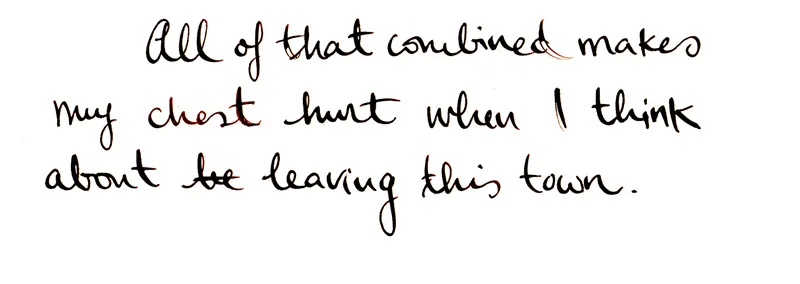 All of that combined makes
my chest hurt when I think
about leaving this town.